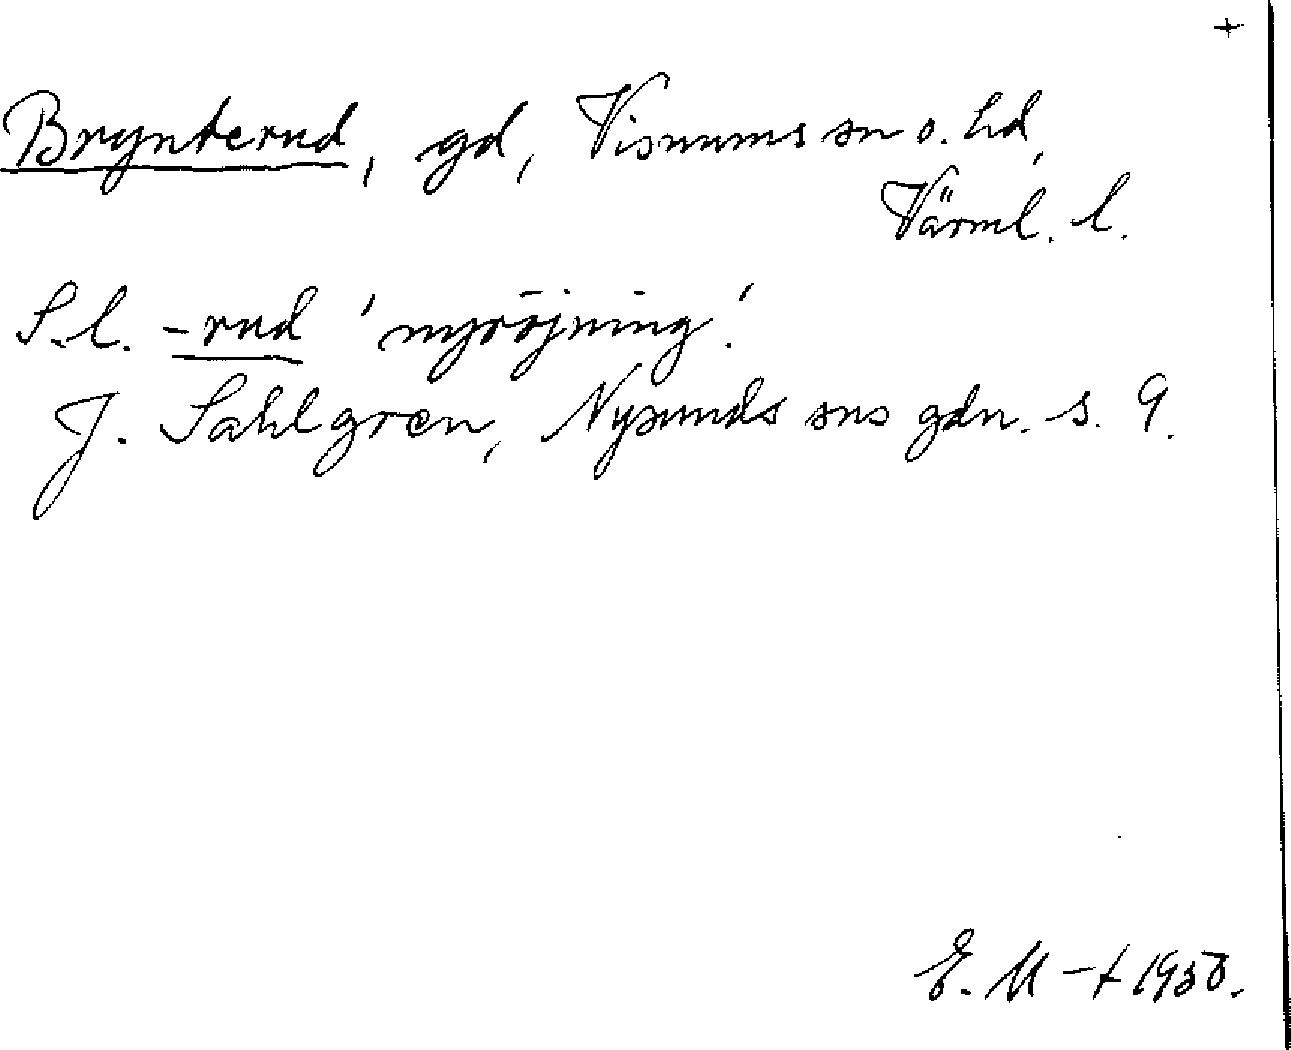 +
Brynterud, gd, Visnums sn o. hd,
Värml. l.
S.l. -rud 'nyröjning'.
J. Sahlgren, Nysunds sns gdn. s. 9.
E. M-t 1950.